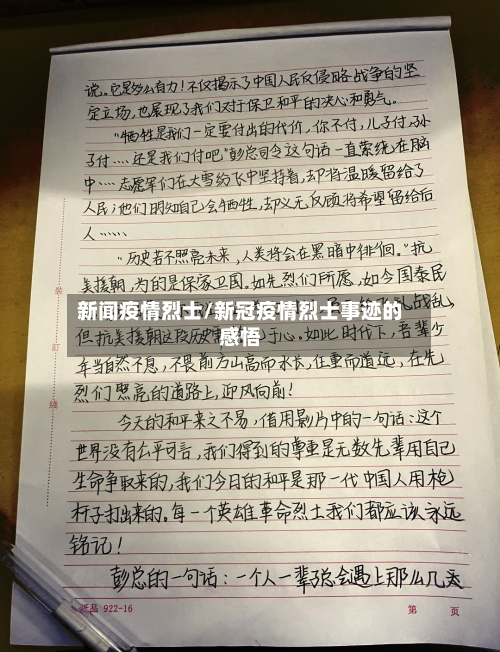 说。它是多么有力！不仅揭示了中国人民反侵略战争的坚
定立场，也展现了我们对于保卫和平的决心和勇气。
“牺牲是我们一定要付出的代价，你不付，儿子付，孙
子付……还是我们付吧”彭总司令这句话一直萦绕在脑
中……志愿军们在大雪纷飞中坚持着，却将温暖留给了
人民；他们明知自己会牺牲，却义无反顾将希望留给后
人……
“历史若不照亮未来，人类将会在黑暗中徘徊。”抗
美援朝，为的是保家卫国。如先烈们所愿，如今国泰民
新闻疫情烈士/新冠疫情烈士事迹的
感悟
战乱，
但抗美援朝这段历史
于心。如此时代下，吾辈少
年当自然不息，不畏前方山高而水长，任重而道远，在先
烈们照亮的道路上，迎风向前！
今天的和平来之不易，借用影片中的一句话：这个
世界没有公平可言，我们得到的尊重是无数先辈用自己
生命争取来的，我们今日的和平是那一代中国人用枪
杆子打出来的。每一个英雄革命烈士我们都应该永远
铭记！
彭总的一句话：一个人一辈子总会遇上那么几
装
订
线
922-16
第 页